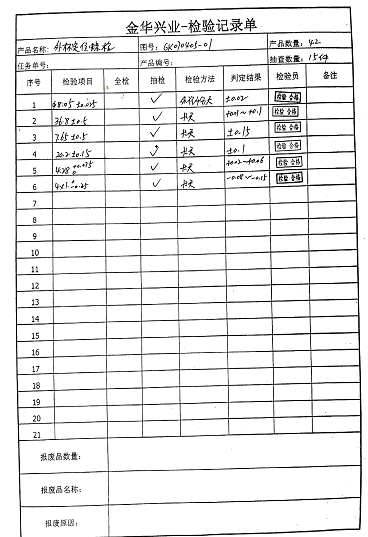 金华兴业-检验记录单
产品名称: 图号: GK010405-01 产品数量: 42
任务单号: 产品编号: 抽查数量: 15件
序号 检验项目 全检 抽检 检验方法 判定结果 检验员 备注
1 68.05 ±0.025 ✓ ±0.02 检验 合格
2 36.8 ±0.5 ✓ 卡尺 +0.1~+0.1 检验 合格
3 7.65 ±0.5 ✓ 卡尺 ±0.15 检验 合格
4 20.2 ±0.15 ✓ 卡尺 ±0.1 检验 合格
5 4.78 +0.075 0 ✓ 卡尺 +0.02~+0.06 检验 合格
6 ✓ 卡尺 -0.08~-0.15 检验 合格
7
8
9
10
11
12
13
14
15
16
17
18
19
20
21
报废品数量:
报废品名称:
报废原因: